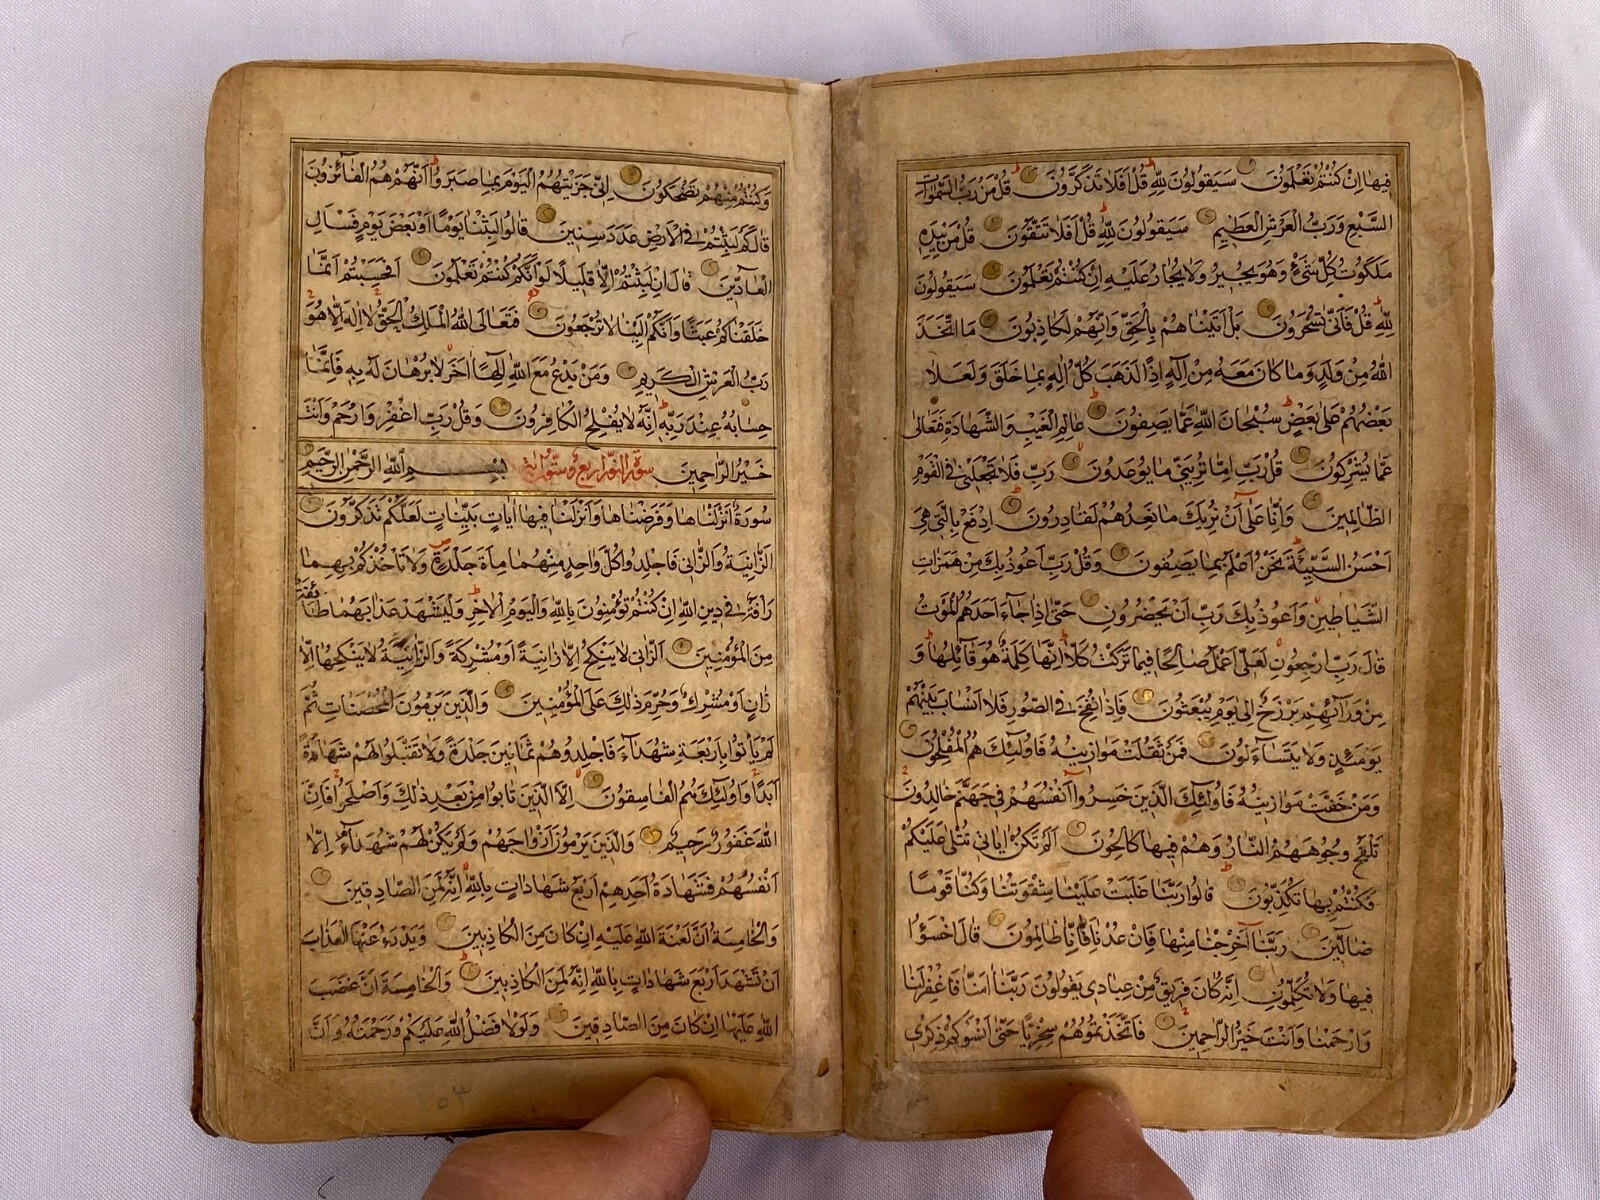 فِيهَا اِنْ كُنْتُمْ تَعْلَمُونَ سَيَقُولُونَ لِلّٰهِ قُلْ اَفَلَا تَذَكَّرُونَ قُلْ مَنْ رَبُّ السَّمٰوَاتِ
السَّبْعِ وَرَبُّ الْعَرْشِ الْعَظِيمِ سَيَقُولُونَ لِلّٰهِ قُلْ اَفَلَا تَتَّقُونَ قُلْ مَنْ بِيَدِهِ
مَلَكُوتُ كُلِّ شَيْءٍ وَهُوَ يُجِيرُ وَلَا يُجَارُ عَلَيْهِ اِنْ كُنْتُمْ تَعْلَمُونَ سَيَقُولُونَ
لِلّٰهِ قُلْ فَاَنّٰى تُسْحَرُونَ بَلْ اَتَيْنَاهُمْ بِالْحَقِّ وَاِنَّهُمْ لَكَاذِبُونَ مَا اتَّخَذَ
اللّٰهُ مِنْ وَلَدٍ وَمَا كَانَ مَعَهُ مِنْ اِلٰهٍ اِذًا لَذَهَبَ كُلُّ اِلٰهٍ بِمَا خَلَقَ وَلَعَلَا
بَعْضُهُمْ عَلٰى بَعْضٍ سُبْحَانَ اللّٰهِ عَمَّا يَصِفُونَ عَالِمِ الْغَيْبِ وَالشَّهَادَةِ فَتَعَالٰى
عَمَّا يُشْرِكُونَ قُلْ رَبِّ اِمَّا تُرِيَنِّي مَا يُوعَدُونَ رَبِّ فَلَا تَجْعَلْنِي فِي الْقَوْمِ
الظَّالِمِينَ وَاِنَّا عَلٰى اَنْ نُرِيَكَ مَا نَعِدُهُمْ لَقَادِرُونَ اِدْفَعْ بِالَّتِي هِيَ
اَحْسَنُ السَّيِّئَةَ نَحْنُ اَعْلَمُ بِمَا يَصِفُونَ وَقُلْ رَبِّ اَعُوذُ بِكَ مِنْ هَمَزَاتِ
الشَّيَاطِينِ وَاَعُوذُ بِكَ رَبِّ اَنْ يَحْضُرُونِ حَتّٰى اِذَا جَاءَ اَحَدَهُمُ الْمَوْتُ
قَالَ رَبِّ ارْجِعُونِ لَعَلِّي اَعْمَلُ صَالِحًا فِيمَا تَرَكْتُ كَلَّا اِنَّهَا كَلِمَةٌ هُوَ قَائِلُهَا وَ
مِنْ وَرَائِهِمْ بَرْزَخٌ اِلٰى يَوْمِ يُبْعَثُونَ فَاِذَا نُفِخَ فِي الصُّورِ فَلَا اَنْسَابَ بَيْنَهُمْ
يَوْمَئِذٍ وَلَا يَتَسَاءَلُونَ فَمَنْ ثَقُلَتْ مَوَازِينُهُ فَاُولٰئِكَ هُمُ الْمُفْلِحُونَ
وَمَنْ خَفَّتْ مَوَازِينُهُ فَاُولٰئِكَ الَّذِينَ خَسِرُوا اَنْفُسَهُمْ فِي جَهَنَّمَ خَالِدُونَ
تَلْفَحُ وُجُوهَهُمُ النَّارُ وَهُمْ فِيهَا كَالِحُونَ اَلَمْ تَكُنْ اٰيَاتِي تُتْلٰى عَلَيْكُمْ
فَكُنْتُمْ بِهَا تُكَذِّبُونَ قَالُوا رَبَّنَا غَلَبَتْ عَلَيْنَا شِقْوَتُنَا وَكُنَّا قَوْمًا
ضَالِّينَ رَبَّنَا اَخْرِجْنَا مِنْهَا فَاِنْ عُدْنَا فَاِنَّا ظَالِمُونَ قَالَ اخْسَؤُا
فِيهَا وَلَا تُكَلِّمُونِ اِنَّهُ كَانَ فَرِيقٌ مِنْ عِبَادِي يَقُولُونَ رَبَّنَا اٰمَنَّا فَاغْفِرْ لَنَا
وَارْحَمْنَا وَاَنْتَ خَيْرُ الرَّاحِمِينَ فَاتَّخَذْتُمُوهُمْ سِخْرِيًّا حَتّٰى اَنْسَوْكُمْ ذِكْرِي
وَكُنْتُمْ مِنْهُمْ تَضْحَكُونَ اِنِّي جَزَيْتُهُمُ الْيَوْمَ بِمَا صَبَرُوا اَنَّهُمْ هُمُ الْفَائِزُونَ
قَالَ كَمْ لَبِثْتُمْ فِي الْاَرْضِ عَدَدَ سِنِينَ قَالُوا لَبِثْنَا يَوْمًا اَوْ بَعْضَ يَوْمٍ فَسْاَلِ
الْعَادِّينَ قَالَ اِنْ لَبِثْتُمْ اِلَّا قَلِيلًا لَوْ اَنَّكُمْ كُنْتُمْ تَعْلَمُونَ اَفَحَسِبْتُمْ اَنَّمَا
خَلَقْنَاكُمْ عَبَثًا وَاَنَّكُمْ اِلَيْنَا لَا تُرْجَعُونَ فَتَعَالَى اللّٰهُ الْمَلِكُ الْحَقُّ لَا اِلٰهَ اِلَّا هُوَ
رَبُّ الْعَرْشِ الْكَرِيمِ وَمَنْ يَدْعُ مَعَ اللّٰهِ اِلٰهًا اٰخَرَ لَا بُرْهَانَ لَهُ بِهِ فَاِنَّمَا
حِسَابُهُ عِنْدَ رَبِّهِ اِنَّهُ لَا يُفْلِحُ الْكَافِرُونَ وَقُلْ رَبِّ اغْفِرْ وَارْحَمْ وَاَنْتَ
خَيْرُ الرَّاحِمِينَ سورة النور اربع وستون اية بِسْمِ اللّٰهِ الرَّحْمٰنِ الرَّحِيمِ
سُورَةٌ اَنْزَلْنَاهَا وَفَرَضْنَاهَا وَاَنْزَلْنَا فِيهَا اٰيَاتٍ بَيِّنَاتٍ لَعَلَّكُمْ تَذَكَّرُونَ
اَلزَّانِيَةُ وَالزَّانِي فَاجْلِدُوا كُلَّ وَاحِدٍ مِنْهُمَا مِاَةَ جَلْدَةٍ وَلَا تَأْخُذْكُمْ بِهِمَا
رَأْفَةٌ فِي دِينِ اللّٰهِ اِنْ كُنْتُمْ تُؤْمِنُونَ بِاللّٰهِ وَالْيَوْمِ الْاٰخِرِ وَلْيَشْهَدْ عَذَابَهُمَا طَائِفَةٌ
مِنَ الْمُؤْمِنِينَ اَلزَّانِي لَا يَنْكِحُ اِلَّا زَانِيَةً اَوْ مُشْرِكَةً وَالزَّانِيَةُ لَا يَنْكِحُهَا اِلَّا
زَانٍ اَوْ مُشْرِكٌ وَحُرِّمَ ذٰلِكَ عَلَى الْمُؤْمِنِينَ وَالَّذِينَ يَرْمُونَ الْمُحْصَنَاتِ ثُمَّ
لَمْ يَأْتُوا بِاَرْبَعَةِ شُهَدَاءَ فَاجْلِدُوهُمْ ثَمَانِينَ جَلْدَةً وَلَا تَقْبَلُوا لَهُمْ شَهَادَةً
اَبَدًا وَاُولٰئِكَ هُمُ الْفَاسِقُونَ اِلَّا الَّذِينَ تَابُوا مِنْ بَعْدِ ذٰلِكَ وَاَصْلَحُوا فَاِنَّ
اللّٰهَ غَفُورٌ رَحِيمٌ وَالَّذِينَ يَرْمُونَ اَزْوَاجَهُمْ وَلَمْ يَكُنْ لَهُمْ شُهَدَاءُ اِلَّا
اَنْفُسُهُمْ فَشَهَادَةُ اَحَدِهِمْ اَرْبَعُ شَهَادَاتٍ بِاللّٰهِ اِنَّهُ لَمِنَ الصَّادِقِينَ
وَالْخَامِسَةُ اَنَّ لَعْنَةَ اللّٰهِ عَلَيْهِ اِنْ كَانَ مِنَ الْكَاذِبِينَ وَيَدْرَؤُا عَنْهَا الْعَذَابَ
اَنْ تَشْهَدَ اَرْبَعَ شَهَادَاتٍ بِاللّٰهِ اِنَّهُ لَمِنَ الْكَاذِبِينَ وَالْخَامِسَةَ اَنَّ غَضَبَ
اللّٰهِ عَلَيْهَا اِنْ كَانَ مِنَ الصَّادِقِينَ وَلَوْلَا فَضْلُ اللّٰهِ عَلَيْكُمْ وَرَحْمَتُهُ وَاَنَّ